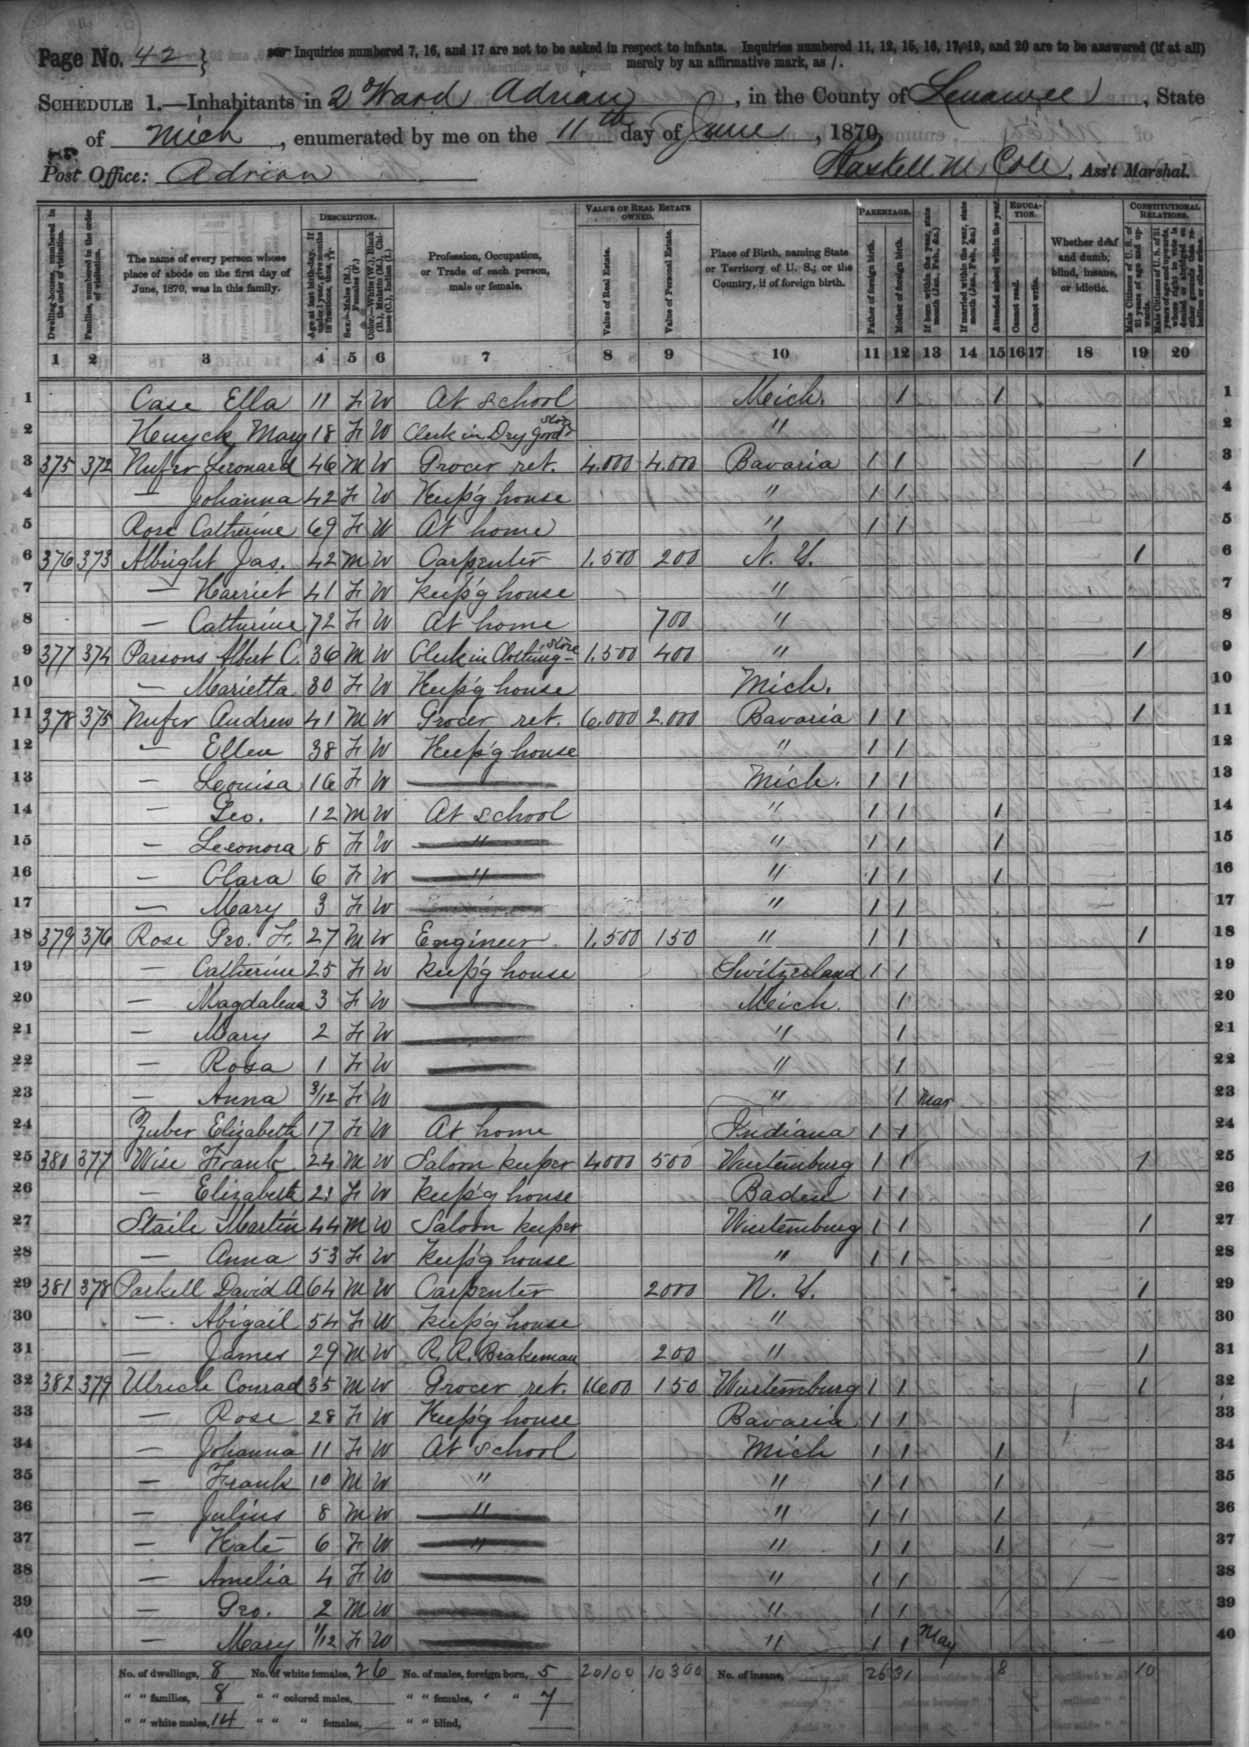 Page No. 42 } Inquiries numbered 7, 16, and 17 are not to be asked in respect to infants. Inquiries numbered 11, 12, 15, 16, 17, 19, and 20 are to be answered (if at all)
merely by an affirmative mark, as /.
SCHEDULE 1.—Inhabitants in 2 Ward Adrian, in the County of Lenawee, State
of Mich, enumerated by me on the 11th day of June, 1870.
Post Office: Adrian M Cole, Ass't Marshal.
Dwelling-house, numbered in the order of visitation.
Families, numbered in the order of visitation.
The name of every person whose place of abode on the first day of June, 1870, was in this family.
DESCRIPTION.
Age at last birth-day. If under 1 year, give months in fractions, thus, 3/12
Sex.—Males (M.), Females (F.)
Color.—White (W.), Black (B.), Mulatto (M.), Chinese (C.), Indian (I.)
Profession, Occupation, or Trade of each person, male or female.
VALUE OF REAL ESTATE OWNED.
Value of Real Estate.
Value of Personal Estate.
Place of Birth, naming State or Territory of U. S.; or the Country, if of foreign birth.
PARENTAGE.
Father of foreign birth.
Mother of foreign birth.
If born within the year, state month (Jan., Feb., &c.)
If married within the year, state month (Jan., Feb., &c.)
Attended school within the year.
EDUCATION.
Cannot read.
Cannot write.
Whether deaf and dumb, blind, insane, or idiotic.
CONSTITUTIONAL RELATIONS.
Male Citizens of U. S. of 21 years of age and upwards.
Male Citizens of U. S. of 21 years of age and upwards, whose right to vote is denied or abridged on other grounds than rebellion or other crime.
1 2 3 4 5 6 7 8 9 10 11 12 13 14 15 16 17 18 19 20
1 Case Ella 11 F W At school Mich. 1 1 1
2 Mary 18 F W Clerk in Dry Good Store " 2
3 375 372 Nufer Leonard 46 M W Grocer ret. 4.000 4.000 Bavaria 1 1 1 3
4 — Johanna 42 F W Keep'g house " 1 1 4
5 Rose Catherine 69 F W At home " 1 1 5
6 376 373 Albright Jas. 42 M W Carpenter 1.500 200 N. Y. 1 6
7 — Harriet 41 F W Keep'g house " 7
8 — Catherine 72 F W At home 700 " 8
9 377 374 Parsons Albert C. 36 M W Clerk in Clothing Store 1.500 400 " 1 9
10 — Marietta 30 F W Keep'g house Mich. 10
11 378 375 Nufer Andrew 41 M W Grocer ret. 6.000 2.000 Bavaria 1 1 1 11
12 — Ellen 38 F W Keep'g house " 1 1 12
13 — Leouisa 16 F W Mich. 1 1 13
14 — Geo. 12 M W At school " 1 1 1 14
15 — Leonora 8 F W " " 1 1 1 15
16 — Clara 6 F W " " 1 1 1 16
17 — Mary 3 F W " 1 1 17
18 379 376 Rose Geo. F. 27 M W Engineer 1.500 150 " 1 1 1 18
19 — Catherine 25 F W Keep'g house Switzerland 1 1 19
20 — Magdalena 3 F W Mich. 1 20
21 — Mary 2 F W " 1 21
22 — Rosa 1 F W " 1 22
23 — Anna 3/12 F W " 1 Mar 23
24 Zuber Elizabeth 17 F W At home Indiana 1 1 24
25 380 377 Wise Frank 24 M W Saloon keeper 4000 500 Wurtemburg 1 1 1 25
26 — Elizabeth 21 F W Keep'g house Baden 1 1 26
27 Staile Martin 44 M W Saloon keeper Wurtemburg 1 1 1 27
28 — Anna 53 F W Keep'g house " 1 1 28
29 381 378 Paskell David A 64 M W Carpenter 2000 N. Y. 1 29
30 — Abigail 54 F W Keep'g house " 30
31 — James 29 M W R. R. Brakeman 200 " 1 31
32 382 379 Ulrich Conrad 35 M W Grocer ret. 1600 150 Wurtemburg 1 1 1 32
33 — Rose 28 F W Keep'g house Bavaria 1 1 33
34 — Johanna 11 F W At school Mich 1 1 1 34
35 — Frank 10 M W " " 1 1 1 35
36 — Julius 8 M W " " 1 1 1 36
37 — Kate 6 F W " " 1 1 1 37
38 — Amelia 4 F W " 1 1 38
39 — Geo. 2 M W " 1 1 39
40 — Mary 1/12 F W " 1 1 May 40
No. of dwellings, 8 No. of white females, 26 No. of males, foreign born, 5 20100 10300 No. of insane, 26 31 8 10
" " families, 8 " " colored males, " " females, " " 7
" " white males, 14 " " " females, " " blind,